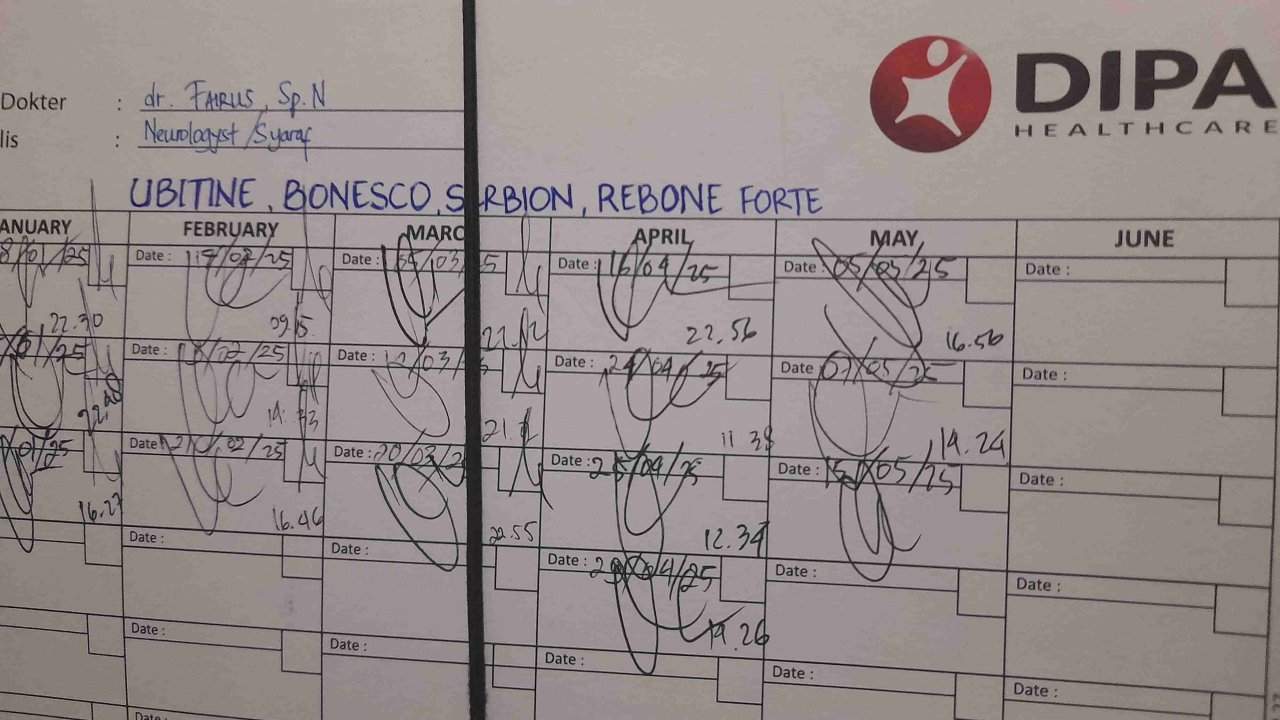 DIPA
HEALTHCARE
Dokter : dr. FAIRUS, Sp.N
lis : Neurologyst/Syaraf
UBITINE, BONESCO, S RBION, REBONE FORTE
ANUARY FEBRUARY MARC APRIL MAY JUNE
8/01/25 Date : Date : Date : 16/04/25 Date : 05/05/25 Date :
22.30 22.56 16.56
/01/25 Date : /02/25 Date : /03/ Date : 24/04/25 Date : 07/05/25 Date :
14.33 11.38 14.24
/01/25 Date : /02/25 Date : 20/03/2 Date : /04/25 Date : 15/05/25 Date :
16.27 16.46 22.55 12.34
Date : Date : Date : 29/04/25 Date : Date :
19.26
Date : Date : Date : Date : Date :
Date